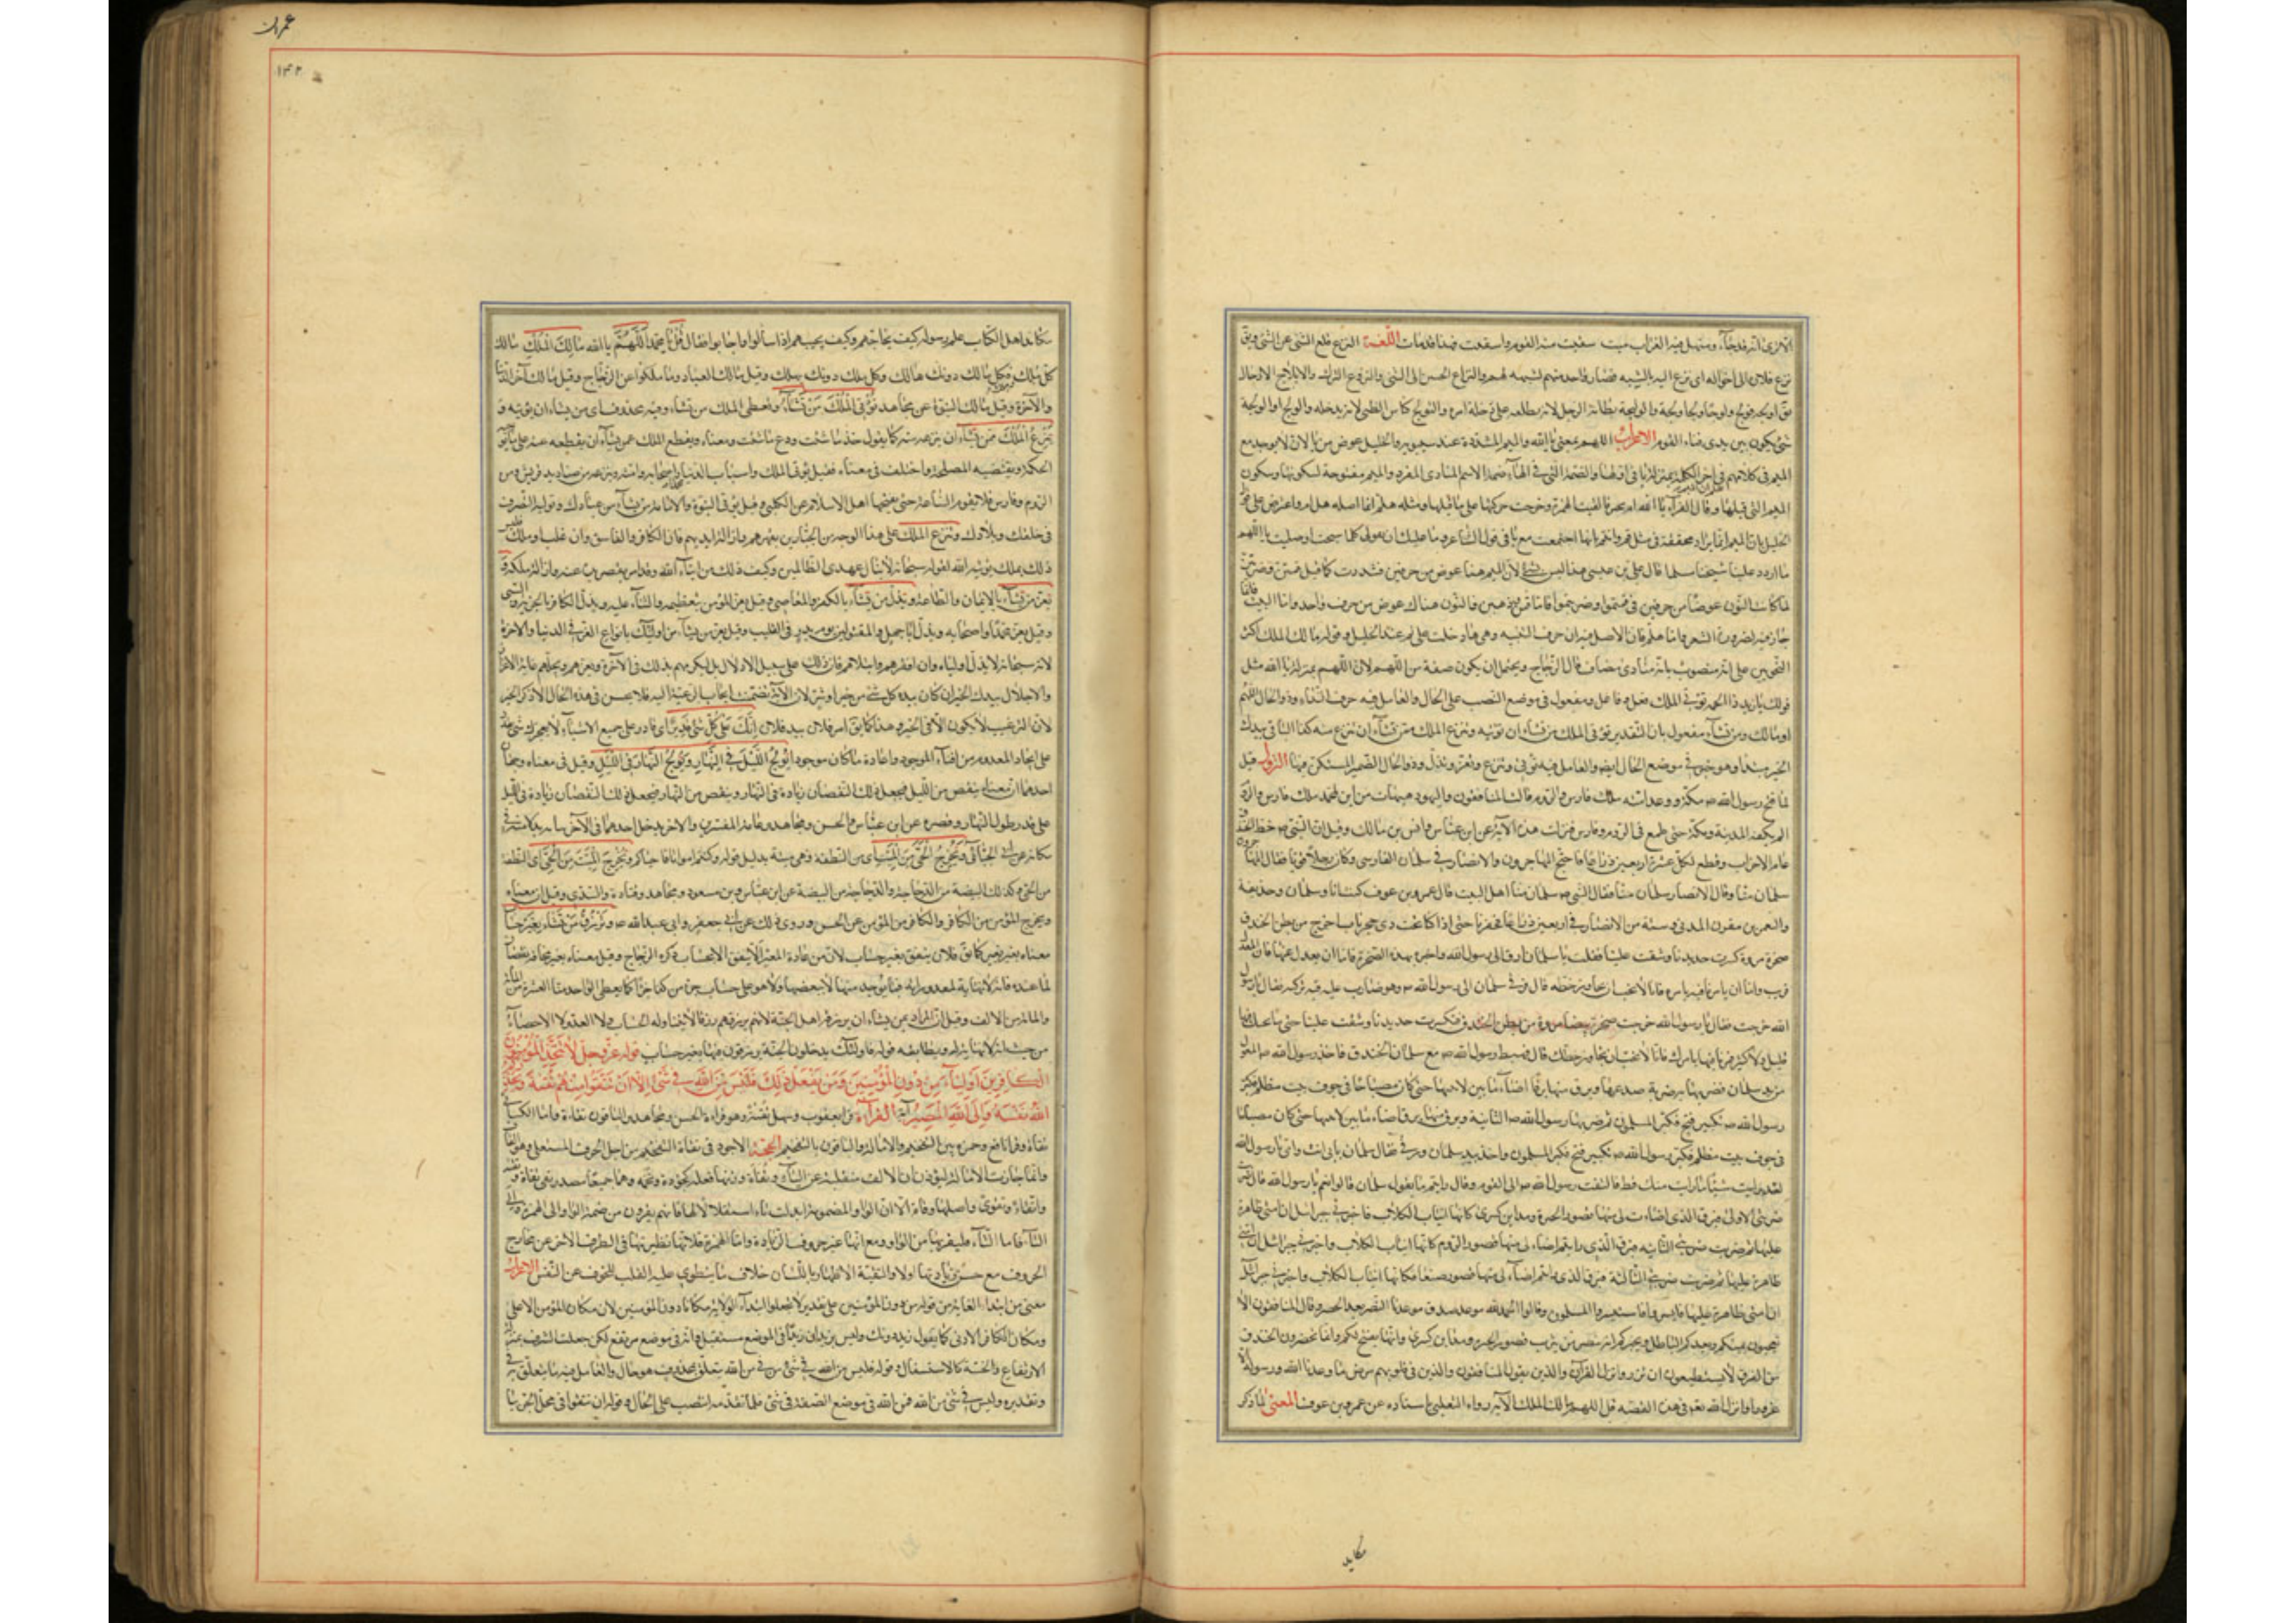 نزع فلان الى اخواله اى نزع اليهم بالشبه فصار واحدا منهم لشبهه لهم والنزاع الحنين الى الشئ والنزوع عن الشئ الترك والايلاج الادخال
شئ يكون بين يدى فناء القوم الاعراب اللهم بمعنى يا الله والميم المشددة عند سيبويه والخليل عوض من يا لان لا يوجد مع
الميم فى كلامهم
الميم التى قبلها وقال الفراء اصله يا الله ام بخير فالقيت الهمزة وطرحت حركتها على ما قبلها ومثله هلم انما اصله هل ام واعترض على
الخليل بان الميم انما تزاد مخففة فى مثل فم وابنم وانها اجتمعت مع يا فى قول الشاعر وما عليك ان تقولى كلما سبحت او صليت يا اللهم
ما اردد علينا شيخنا مسلما قال على بن عيسى هذا ليس بشئ لان الميم هنا عوض من حرفين فشددت كما قيل قمتن وضربتن
لما كانت النون عوضا من حرفين فى قمتموا وضربتموا فاما قمن وذهبن فالنون هناك عوض من حرف واحد واما البيت فانما
جاز فيه لضرورة الشعر واما هلم فان الاصل فيه ان حرف التنبيه وهى ها دخلت على لم عند الخليل وقوله مالك الملك اكثر
النحويين على انه منصوب بانه منادى مضاف قال الزجاج ويحتمل ان يكون صفة من اللهم لان اللهم بمنزلة يا الله مثل
قولك يا زيد ذا الجمة تؤتى الملك فعل وفاعل ومفعول فى موضع النصب على الحال والعامل فيه حرف النداء وذو الحال اللهم
او مالك ومن تشاء مفعول ثان التقدير تؤتى الملك من تشاء ان تؤتيه وتنزع الملك ممن تشاء ان تنزع منه كذا الباقى بيدك
الخير مبتدا وهو خبر فى موضع الحال ايضا والعامل فيه تؤتى وتنزع وتعز وتذل وذو الحال الضمير المستكن فيها النزول قيل
لما فتح رسول الله ص مكة ووعد امته ملك فارس والروم قالت المنافقون واليهود هيهات من اين لمحمد ملك فارس والروم
الم يكفه المدينة ومكة حتى طمع فى الروم وفارس فنزلت هذه الآية عن ابن عباس وانس بن مالك وقيل ان النبى ص خط الخندق
عام الاحزاب وقطع لكل عشرة اربعين ذراعا فاحتج المهاجرون والانصار فى سلمان الفارسى وكان رجلا قويا فقال المهاجرون
سلمان منا وقال الانصار سلمان منا فقال النبى ص سلمان منا اهل البيت قال عمرو بن عوف كنت انا وسلمان وحذيفة
والنعمن بن مقرن المدنى وستة من الانصار فى اربعين ذراعا فحفرنا حتى اذا كنا بجب ذى باب اخرج من بطن الخندق
صخرة مروة كسرت حديدنا وشقت علينا فقلنا يا سلمان ارق الى رسول الله واخبره بهذه الصخرة فاما ان يعدل عنها فان المعدل
قريب واما ان يامرنا فيه بامره فانا لا نحب ان نجاوز خطه قال فرقى سلمان الى رسول الله ص وهو ضارب عليه قبة تركية فقال يا رسول
الله خرجت
قليل ولا كثير فمرنا فيها بامرك فانا لا نحب ان نجاوز خطك قال فهبط رسول الله ص مع سلمان الخندق فاخذ رسول الله ص المعول
من يد سلمان فضربها به ضربة صدعها وبرق منها برق اضاء ما بين لابتيها حتى كان مصباحا فى جوف بيت مظلم فكبر
رسول الله ص تكبير فتح فكبر المسلمون ثم ضربها رسول الله ص الثانية وبرق منها برق اضاء ما بين لابتيها حتى كان مصباحا
فى جوف بيت مظلم فكبر رسول الله ص تكبير فتح فكبر المسلمون واخذ بيد سلمان ورقى فقال سلمان بابى انت وامى يا رسول الله
لقد رايت شيئا ما رايت منك قط فالتفت رسول الله ص الى القوم وقال رايتم ما يقول سلمان قالوا نعم يا رسول الله قال ضربت
ضربتى الاولى فبرق الذى رايتم اضاءت لى منها قصور الحيرة ومداين كسرى كانها انياب الكلاب فاخبرنى جبرائيل ان امتى ظاهرة
عليها ثم ضربت ضربتى الثانية فبرق الذى رايتم اضاء لى منها قصور الروم كانها انياب الكلاب واخبرنى جبرائيل ان امتى
ظاهرة عليها ثم ضربت ضربتى الثالثة فبرق الذى رايتم اضاء لى منها قصور صنعا كانها انياب الكلاب واخبرنى جبرائيل
ان امتى ظاهرة عليها فابشروا فاستبشر المسلمون وقالوا الحمد لله موعد صدق وعدنا النصر بعد الحصر وقال المنافقون الا
تعجبون يمنيكم ويعدكم الباطل ويخبركم انه يبصر من يثرب قصور الحيرة ومداين كسرى وانها تفتح لكم وانتم تحفرون الخندق
من الفرق لا تستطيعون ان تبرزوا فنزل القرآن واذ يقول المنافقون والذين فى قلوبهم مرض ما وعدنا الله ورسوله الا
غرورا وانزل الله تعالى فى هذه القصة قل اللهم مالك الملك الآية رواه الثعلبى باسناده عن عمرو بن عوف المعنى لما ذكر
مكايد
عمران
١٤٢
مكايد اهل الكتاب علم رسوله كيف يحاجهم وكيف يجيبهم اذا سالوا واجابوا فقال قل يا محمد اللهم يا الله مالك الملك مالك
كل ملك فكل مالك دونك هالك وكل ملك دونك يهلك وقيل مالك العباد وما ملكوا عن الزجاج وقيل مالك امر الدنيا
والآخرة وقيل مالك النبوة عن مجاهد تؤتى الملك من تشاء تعطى الملك من تشاء وفيه محذوف اى من تشاء ان تؤتيه و
تنزع الملك ممن تشاء ان تنزعه منه كما يقول خذ ما شئت ودع ما شئت ومعناه وتقطع الملك عمن تشاء ان تقطعه عنه على ما توجبه
الحكمة وتقتضيه المصلحة واختلف فى معناه فقيل تؤتى الملك واسباب الدنيا محمدا واصحابه وامته وتنزعه من صناديد قريش ومن
الروم وفارس فلا تقوم الساعة حتى يفتحها اهل الاسلام عن الكلبى وقيل تؤتى النبوة والامامة من تشاء من عبادك وتوليه التصرف
فى خلقك وبلادك وتنزع الملك على هذا الوجه من الجبارين بقهرهم وازالة ايديهم فان الكافر والفاسق وان غلب او ملك فليس
ذلك بملك يؤتيه الله لقوله سبحانه لا ينال عهدى الظالمين وكيف يكون ذلك من ايتاء الله وقد امر بقصر يده عنه وازالة ملكه و
تعز من تشاء بالايمان والطاعة وتذل من تشاء بالكفر والمعاصى وقيل تعز المؤمن بتعظيمه والثناء عليه وتذل الكافر بالجزية والسبى
وقيل تعز محمدا واصحابه وتذل ابا جهل والمقتولين يوم بدر فى القليب وقيل تعز من تشاء من اوليائك بانواع العزة فى الدنيا والآخرة
لانه سبحانه لا يذل اولياءه وان افقرهم وابتلاهم فان ذلك على سبيل الاذلال بل ليكرمهم بذلك فى الآخرة ويعزهم ويجلهم غاية الاعزاز
والاجلال بيدك الخير ان كان بيده كل شئ من خير او شر لان الآية تضمنت ايجاب الرغبة اليه فلا يحسن فى هذه الحال الا ذكر الخير
لان الترغيب لا يكون الا فى الخير وهذا كما يقال امر فلان بيد فلان انك على كل شئ قدير اى قادر على جميع الاشياء لا يعجزك شئ تقدر
على ايجاد المعدوم وافناء الموجود واعادة ما كان موجودا تولج الليل فى النهار وتولج النهار فى الليل وقيل فى معناه وجهان
احدهما ان معناه ينقص من الليل فيجعل ذلك النقصان زيادة فى النهار وينقص من النهار فيجعل ذلك النقصان زيادة فى الليل
على قدر طول النهار وقصره عن ابن عباس والحسن ومجاهد وعامة المفسرين والآخر يدخل احدهما فى الآخر باتيانه بدلا منه فى
مكانه عن ابى على الجبائى وتخرج الحى من الميت اى من النطفة وهى ميتة بدليل قوله وكنتم امواتا فاحياكم وتخرج الميت من الحى اى النطفة
من الحى وكذلك البيضة من الدجاجة والدجاجة من البيضة عن ابن عباس وبن مسعود ومجاهد وقتادة والسدى وقيل ان معناه
وتخرج المؤمن من الكافر والكافر من المؤمن عن الحسن وروى ذلك عن ابى جعفر وابى عبد الله ص وترزق من تشاء بغير حساب
معناه بغير تقتير كما يقال فلان ينفق بغير حساب لان من عادة المقتر الا ينفق الا بحساب ذكره الزجاج وقيل معناه بغير مخافة نقصان
والمائة من الالف وقيل ان المراد بمن يشاء ان يرزقه اهل الجنة لانهم يرزقهم رزقا لا يتناوله الحساب ولا العد ولا الاحصاء
من حيث انه لا نهاية له ويطابقه قوله فاولئك يدخلون الجنة يرزقون فيها بغير حساب قوله عز وجل لا يتخذ المؤمنون
الكافرين اولياء من دون المؤمنين ومن يفعل ذلك فليس من الله فى شئ الا ان تتقوا منهم تقية ويحذركم
الله نفسه والى الله المصير آية القراءة قرا يعقوب وسهل تقية وهو قراءة الحسن ومجاهد والباقون تقاة وامال الكسائى
تقاة وقرا نافع وحمزة بين التفخيم والامالة والباقون بالتفخيم الحجة الاجود فى تقاة التفخيم من اجل الحرف المستعلى وهو القاف
وانما جازت الامالة ليؤذن ان الالف منقلبة عن الياء وتقاة وزنها فعلة نحو تؤدة وتخمة وهما جميعا مصدر اتقى تقاة وتقية
واتقاء وتقوى واصلها وقاة الا ان الواو المضمومة ابدلت تاء استثقالا لها فانهم يفرون من ضمة الواو الى الهمزة والى
التاء فاما التاء فلقربها من الواو ومع انها عن حروف الزيادة واما الهمزة فلانها نظيرتها فى الطرف الآخر عن مخارج
الحروف مع حسن زيادتها اولا والتقية الاظهار باللسان خلاف ما ينطوى عليه القلب للخوف عن النفس الاعراب
معنى من ابتداء الغاية من قوله من دون المؤمنين على تقدير لا تجعلوا ابتداء الولاية مكانا دون المؤمنين لان مكان المؤمن الاعلى
ومكان الكافر الادنى كما تقول زيد دونك ولست تريد ان زيدا فى موضع مستفل وانه فى موضع مرتفع لكن جعلت الشرف بمنزلة
الارتفاع والخسة كالاستفال وقوله فليس من الله فى شئ من فى من الله يتعلق بمحذوف هو حال والعامل فيه ما يتعلق به فى
وتقديره وليس فى شئ من الله فمن الله فى موضع الصفة فى شئ فلما تقدمه انتصب على الحال وقوله ان تتقوا فى محل الجر با